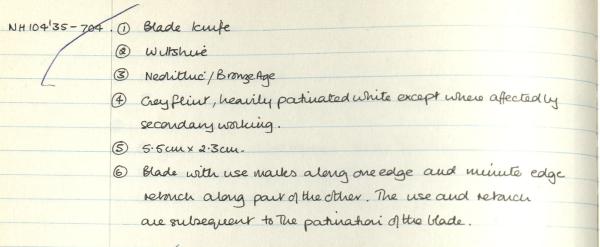 NH104'35-704. ① Blade Knife
② Wiltshire
③ Neolithic/Bronze Age
④ Grey flint, heavily patinated white except where affected by
secondary working.
⑤ 5.5cm x 2.3cm.
⑥ Blade with use marks along one edge and minute edge
retouch along part of the other. The use and retouch
are subsequent to the patination of the blade.